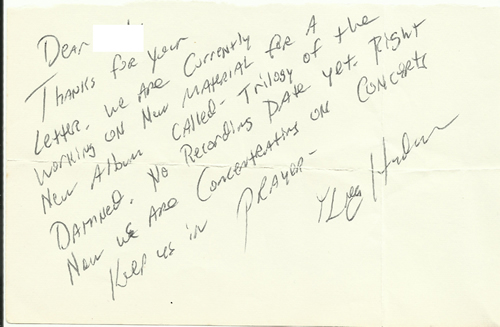 Dear
Thanks for your
Letter. We are Currently
Working on New Material for A
New Album Called - Trilogy of the
Damned. No Recording Date yet. Right
Now we are Concentrating on Concerts
Keep us in Prayer -